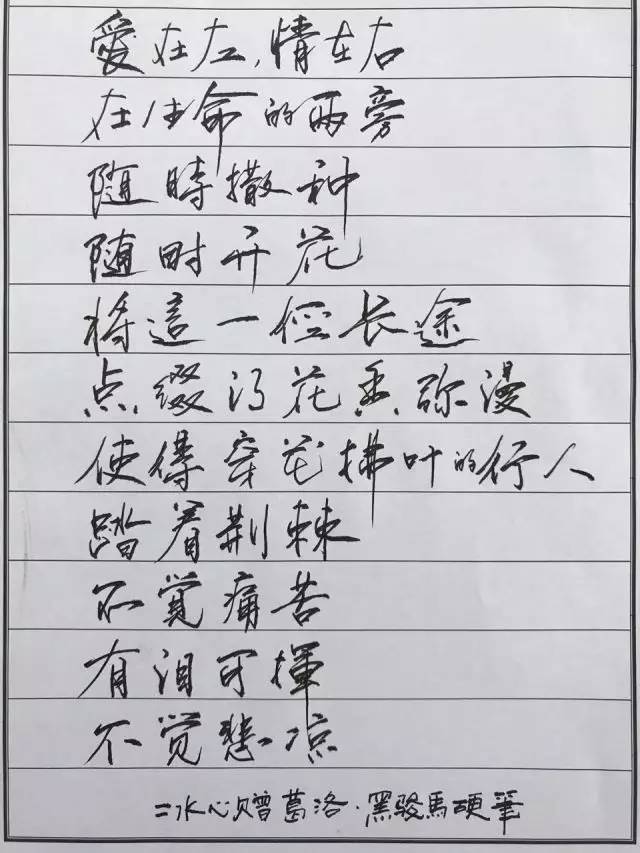 愛在左,情在右
在生命的两旁
随時撒种
随时开花
将這一徑长途
点缀得花香弥漫
使得穿花拂叶的行人
踏着荆棘
不觉痛苦
有泪可揮
不觉悲凉
=冰心赠葛洛·黑骏馬硬筆